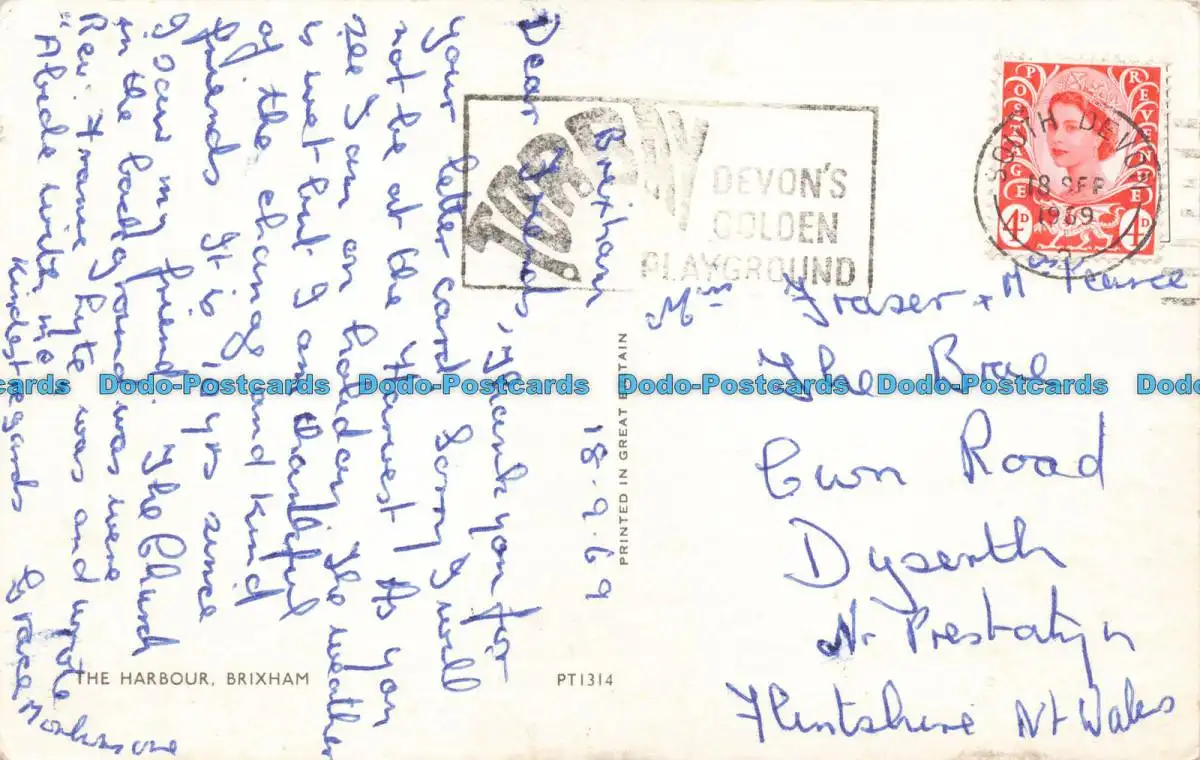 Brixham 18.9.69
Dear Friends, Thank you for
your letter card Sorry I will
not be at the Harvest As you
see I am on holiday The weather
is wet but I am thankful
of the change and kind
friends It is 10 yrs since
I saw my friend. The Church
in the background was were
Rev. Francis Lyte was and wrote
"Abide with me
Kindest regards Grace
TORBAY
DEVON'S
GOLDEN
PLAYGROUND
SOUTH DEVON
18 SEP
1969
POSTAGE REVENUE
4D 4D
Mrs Fraser + Mrs Pearce
The Brae
Cwm Road
Dyserth
Nr Prestatyn
Flintshire Nt Wales
PRINTED IN GREAT BRITAIN
THE HARBOUR, BRIXHAM
PT1314
Dodo-Postcards Dodo-Postcards Dodo-Postcards Dodo-Postcards